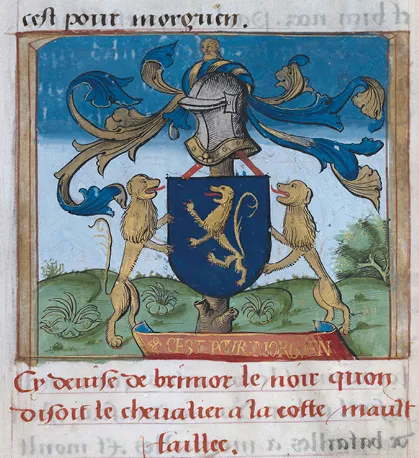 cest pour morguen.
CEST POVR MORGVEN
Cy deuise de brunor le noir quon
disoit le cheualier a la cotte mault
taillee.